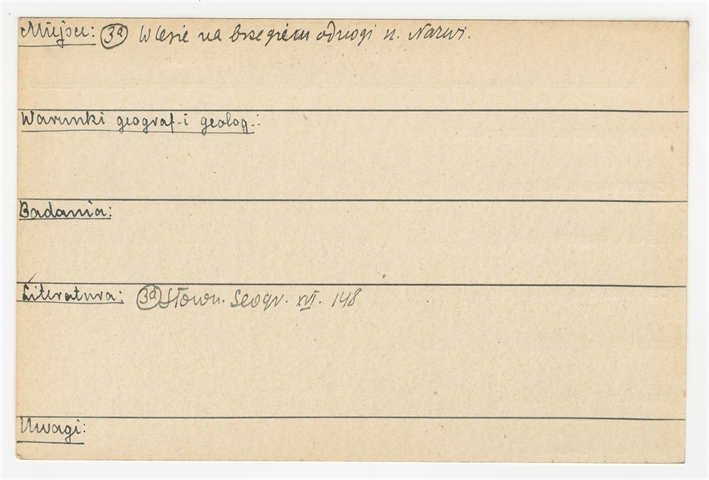 Miejsce: (3a) W lesie na brzegiem odnogi n. Narwi.
Warunki geograf. i geolog.:
Badania:
Literatura: (3a) Słown. Geogr. XVI. 148
Uwagi: